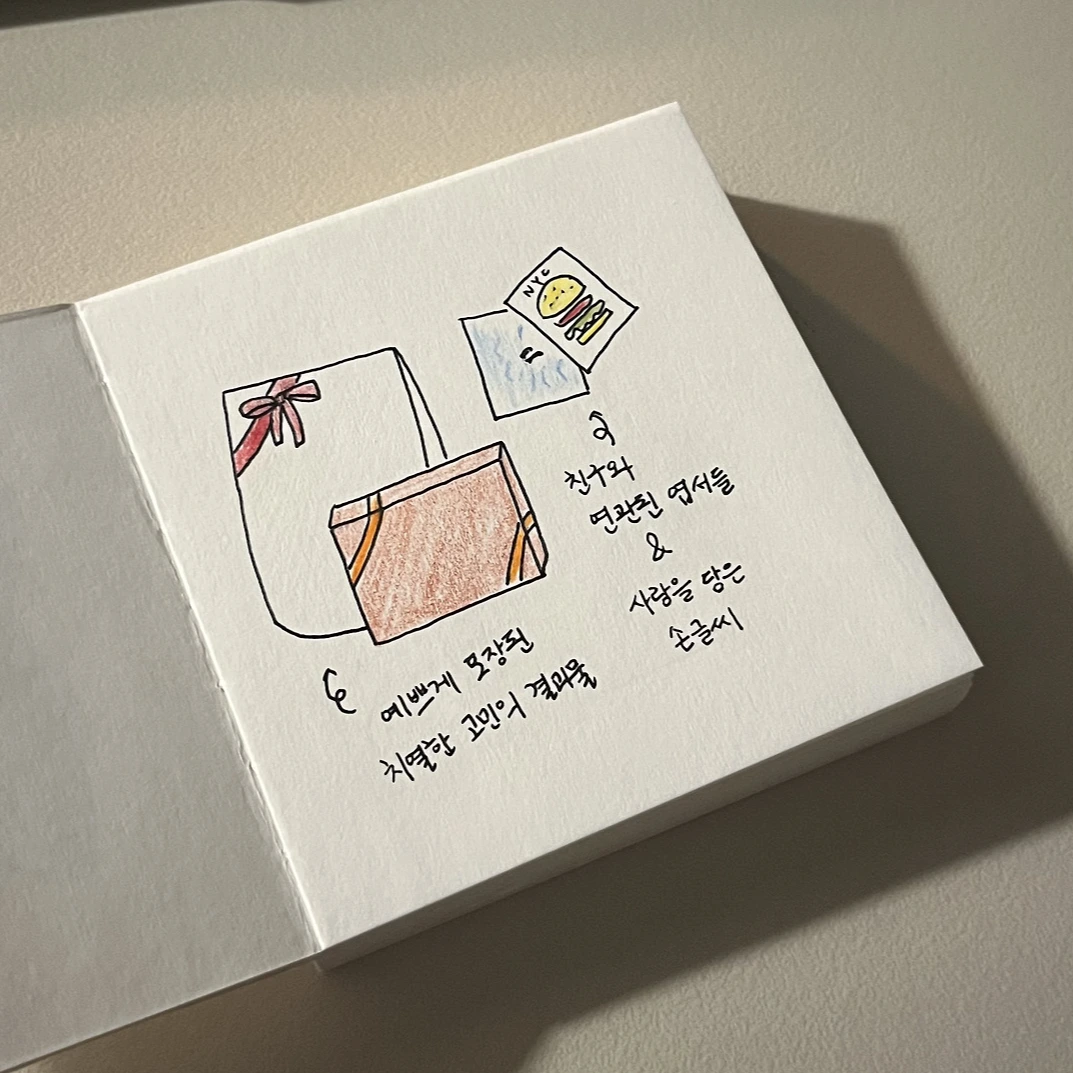 NYC
친구와
연관된 엽서들
&
사랑을 담은
손글씨
예쁘게 포장된
치열한 고민의 결과물